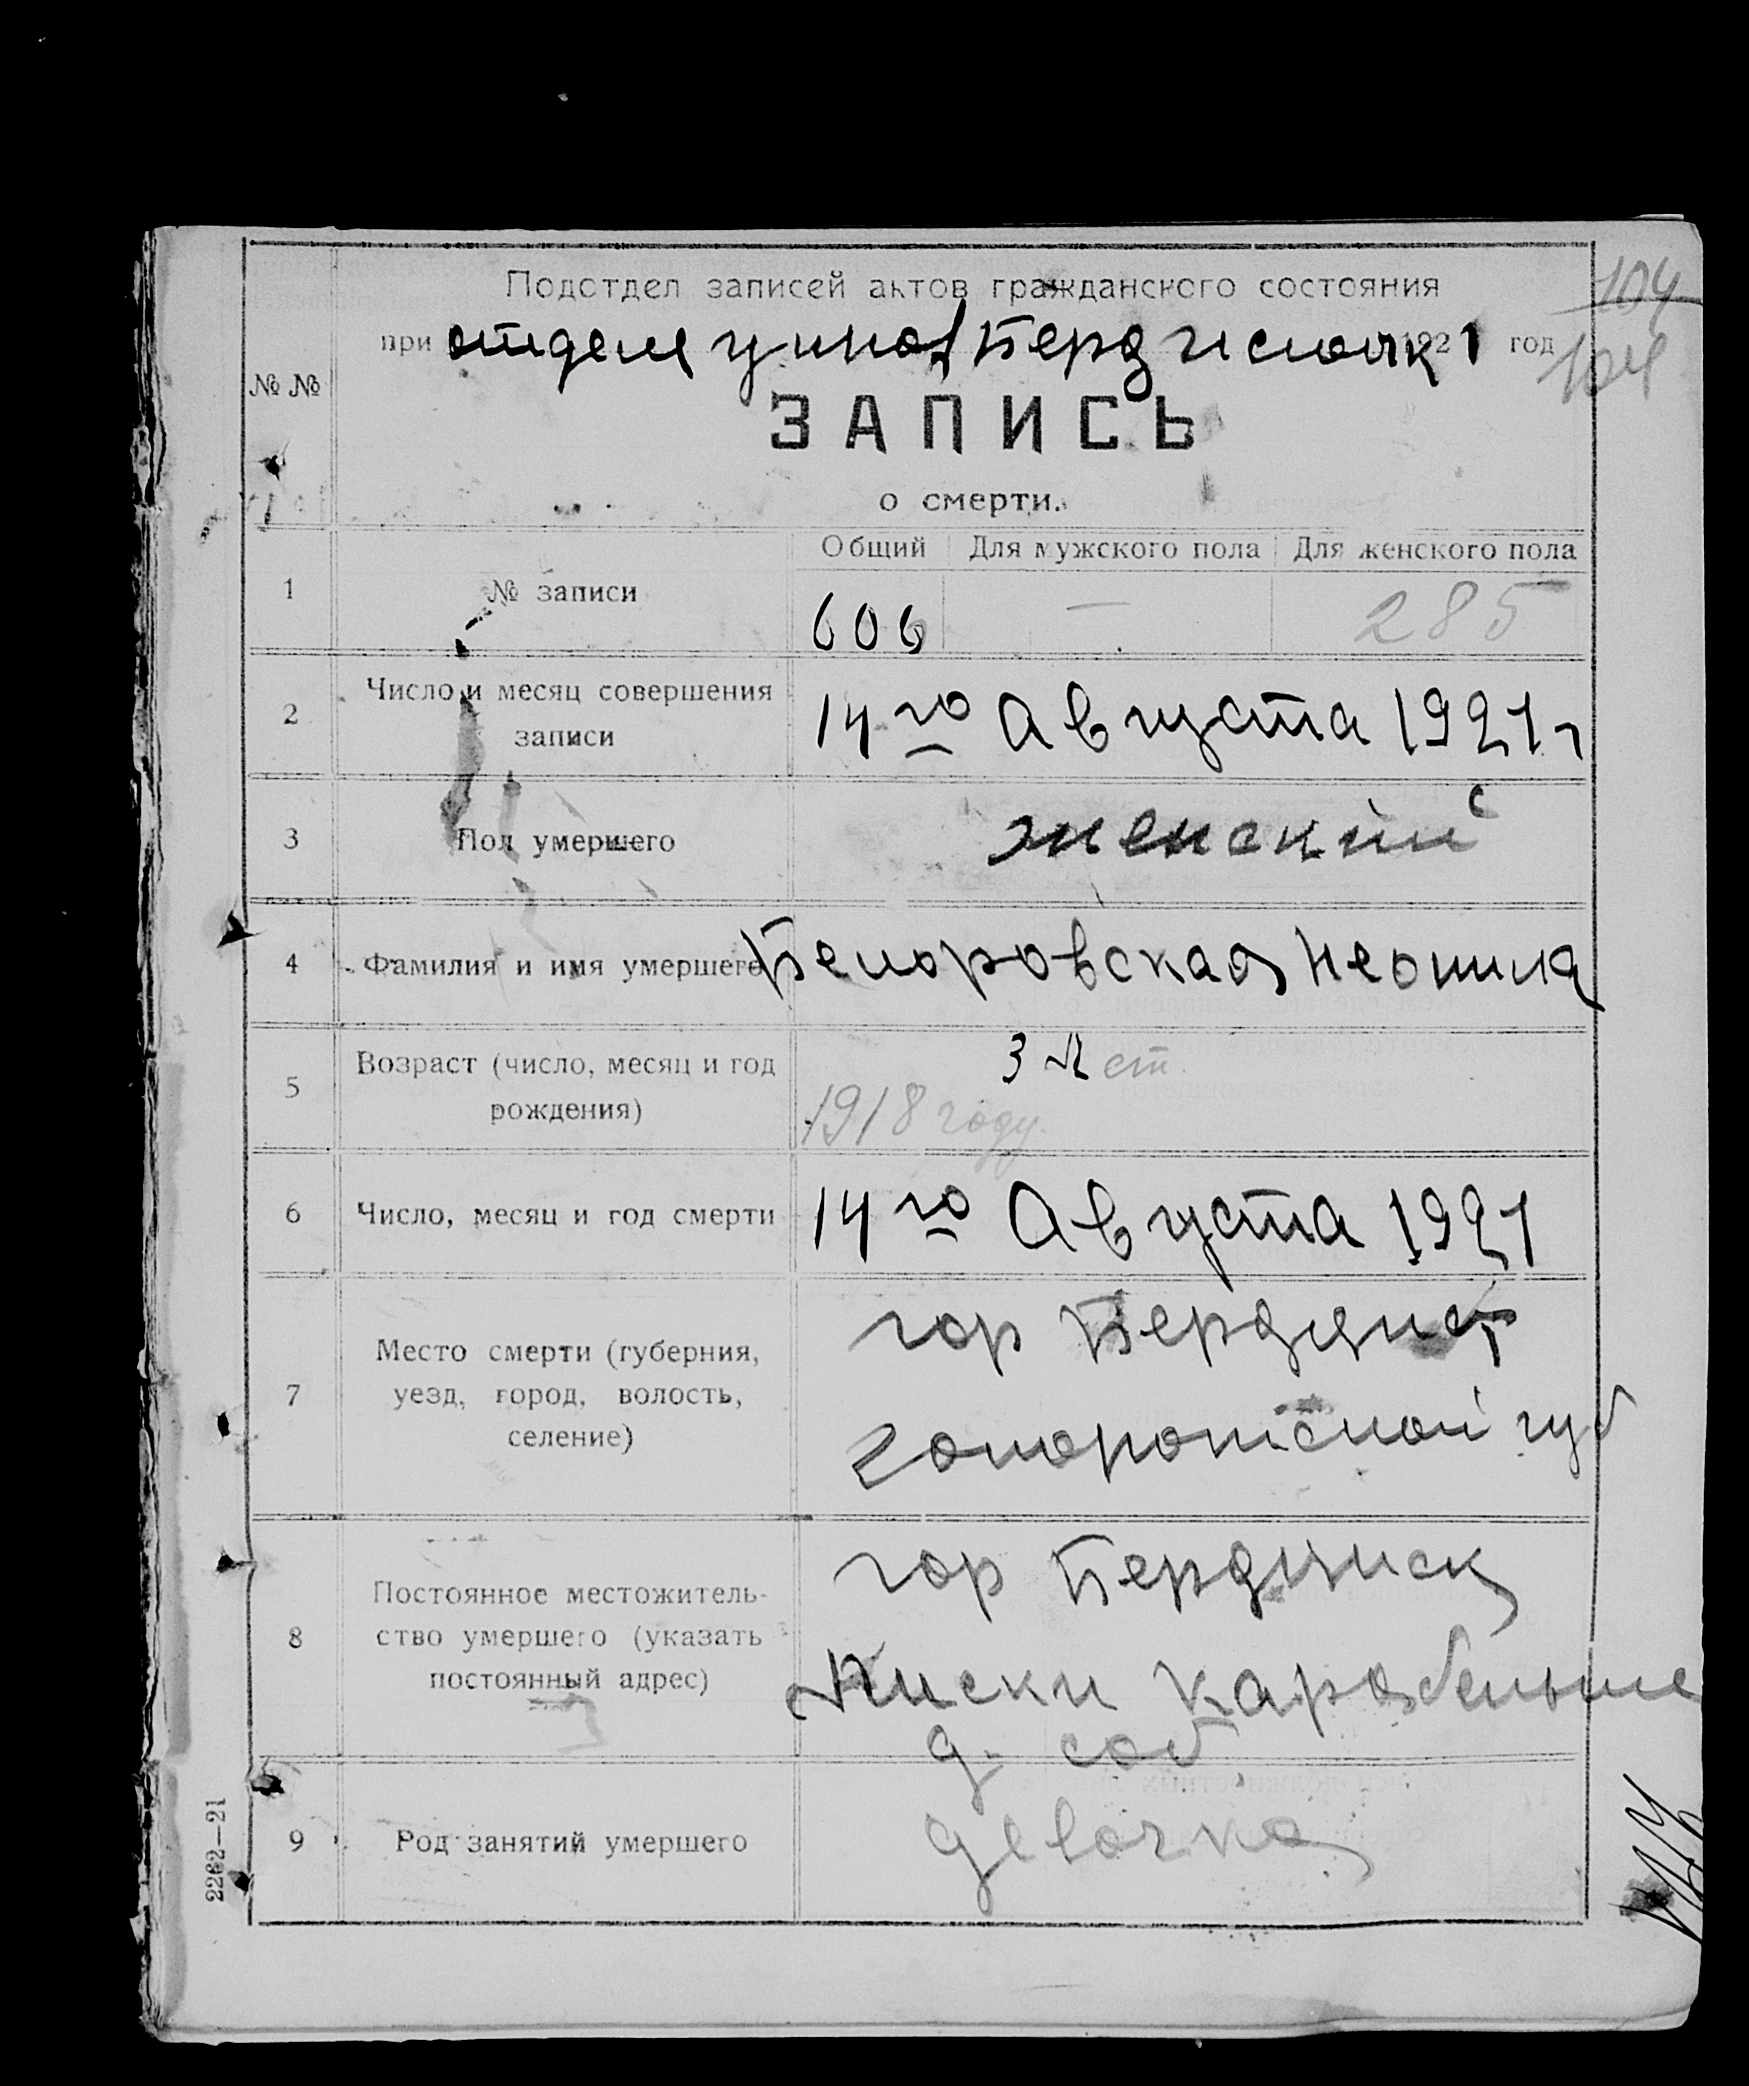 Подотдел записей актов гражданского состояния
104
при отделе управ Бердянском 1921 год
104
№ №
ЗАПИСЬ
о смерти.
Общий Для мужского пола Для женского пола
1 № записи 606 — 285
2 Число и месяц совершения
записи
14го Августа 1921 г
3 Пол умершего женский
4 Фамилия и имя умершего Белоровская Неонила
5 Возраст (число, месяц и год
рождения)
3 лет
1918 году.
6 Число, месяц и год смерти 14го Августа 1921
7 Место смерти (губерния,
уезд, город, волость,
селение)
гор Бердянск
губ
8 Постоянное местожитель-
ство умершего (указать
постоянный адрес)
гор Бердянск
Лиски
д. соб
9 Род занятий умершего девочка
2262—21